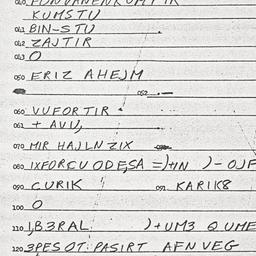 040
KUMSTU
041 BIN-STU
042 ZAJTIR
043 O
050 ERIZ AHEJM
052 —
060 VUFORTIR
061 + AVU,
070 MIR HAJLN ZIX
080 IXFORCU ODE,SA =)+IN )-OJF
090 CURIK 091 KARIK8
100 O
110 1,B3RAL )+UM3 Q UME
120 3PES OT: PASIRT AFN VEG